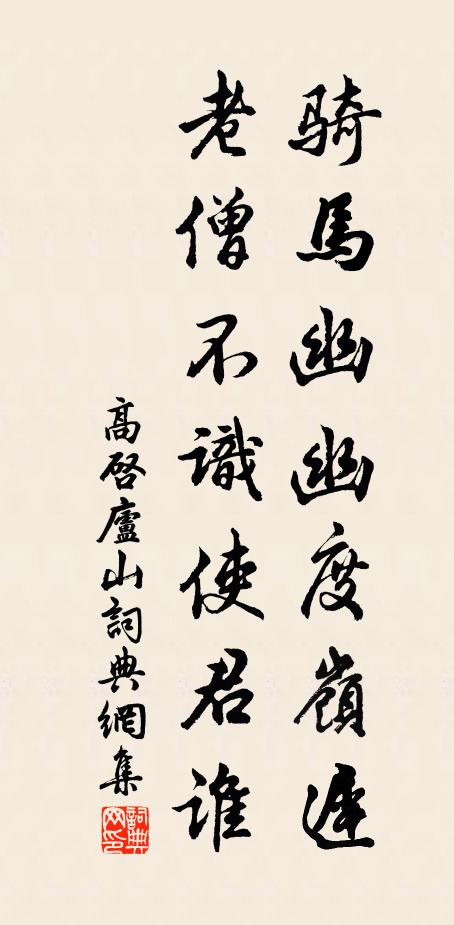 騎馬幽幽度嶺遲
老僧不識使君誰
高啓廬山詞典網集
詞典网印